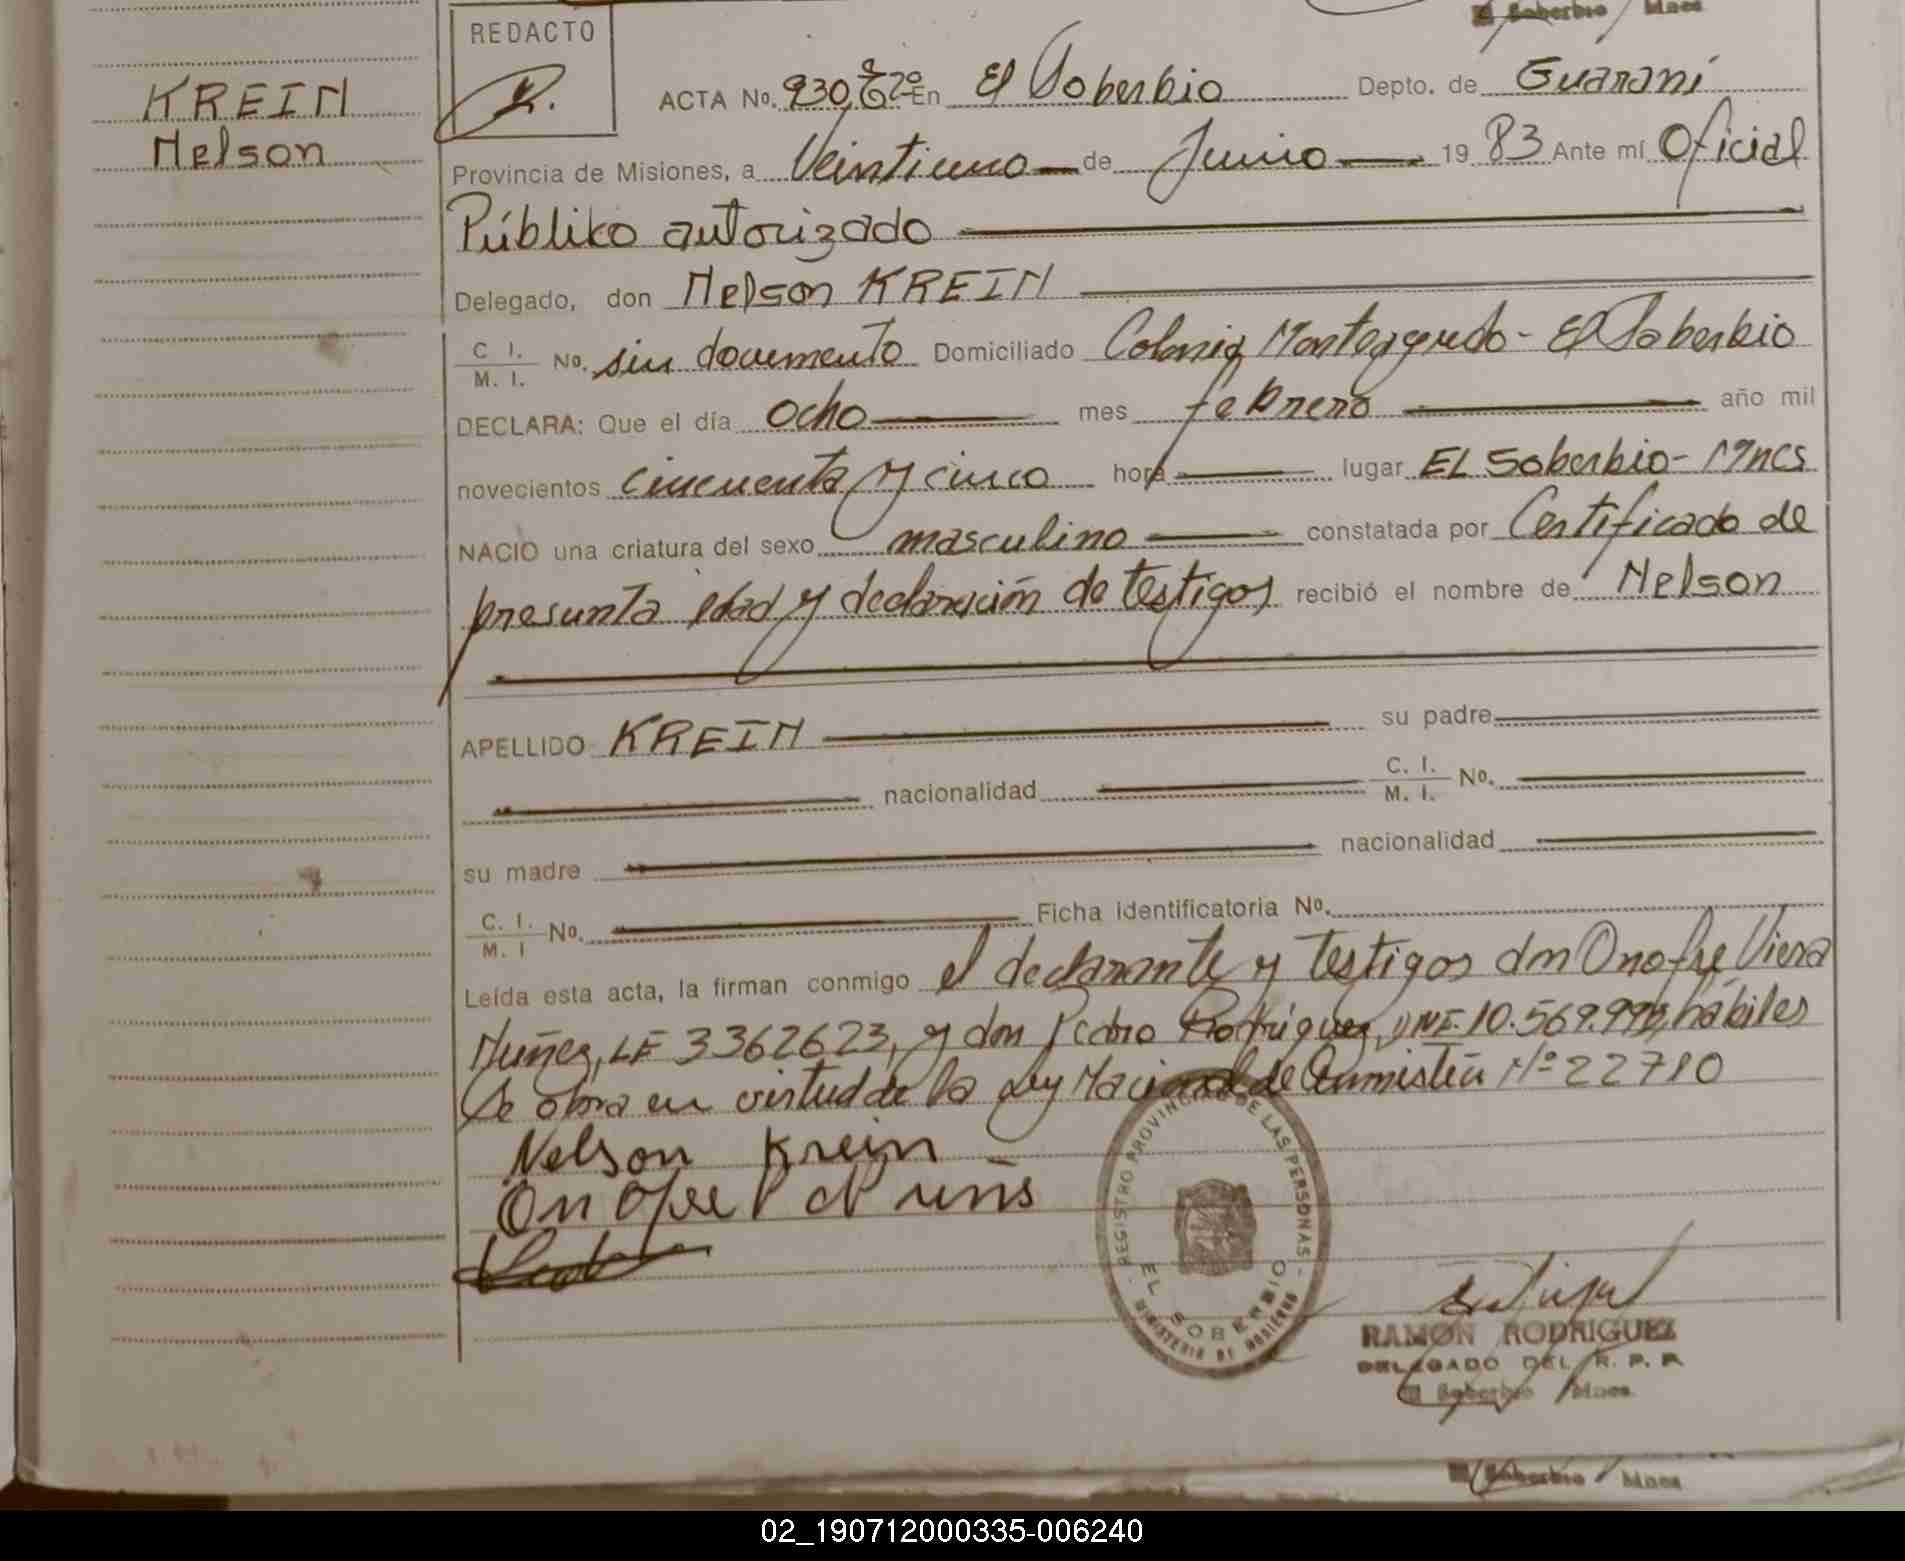 El Soberbio Mnes
KREIN
Nelson
REDACTO
ACTA No. 930, En El Soberbio Depto. de Guaraní
Provincia de Misiones, a Veintiuno de Junio 1983 Ante mí Oficial
Públiko autorizado
Delegado, don Nelson KREIN
C. I. / M. I. No. sin documento Domiciliado Colonia Monteagudo - El Soberbio
DECLARA: Que el día ocho mes febrero año mil
novecientos cincuenta y cinco hora lugar EL Soberbio - Mnes
NACIO una criatura del sexo masculino constatada por Certificado de
presunta edad y declaración de testigos recibió el nombre de Nelson
APELLIDO KREIN su padre
nacionalidad C. I. / M. I. No.
su madre nacionalidad
C. I. / M. I No. Ficha identificatoria No.
Leída esta acta, la firman conmigo el declarante y testigos don Onofre Viera
Nuñez, LE 3362623, y don Pedro Rodriguez, DNI. hábiles
Se obra en virtud de la Ley Nacional de Amnistía Nº 22710
Nelson Krein
REGISTRO PROVINCIAL DE LAS PERSONAS
EL SOBERBIO
MINISTERIO DE GOBIERNO
RAMON RODRIGUEZ
DELEGADO DEL R. P. P.
El Soberbio Mnes
El Soberbio Mnes
02_190712000335-006240